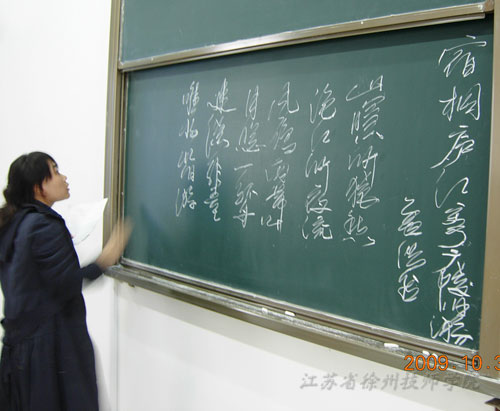 宿桐庐江寄广陵旧游
孟浩然
山暝听猿愁
沧江急夜流
风鸣两岸叶
月照一孤舟
建德非吾土
维扬忆旧游
2009.10.3
江苏省徐州技师学院